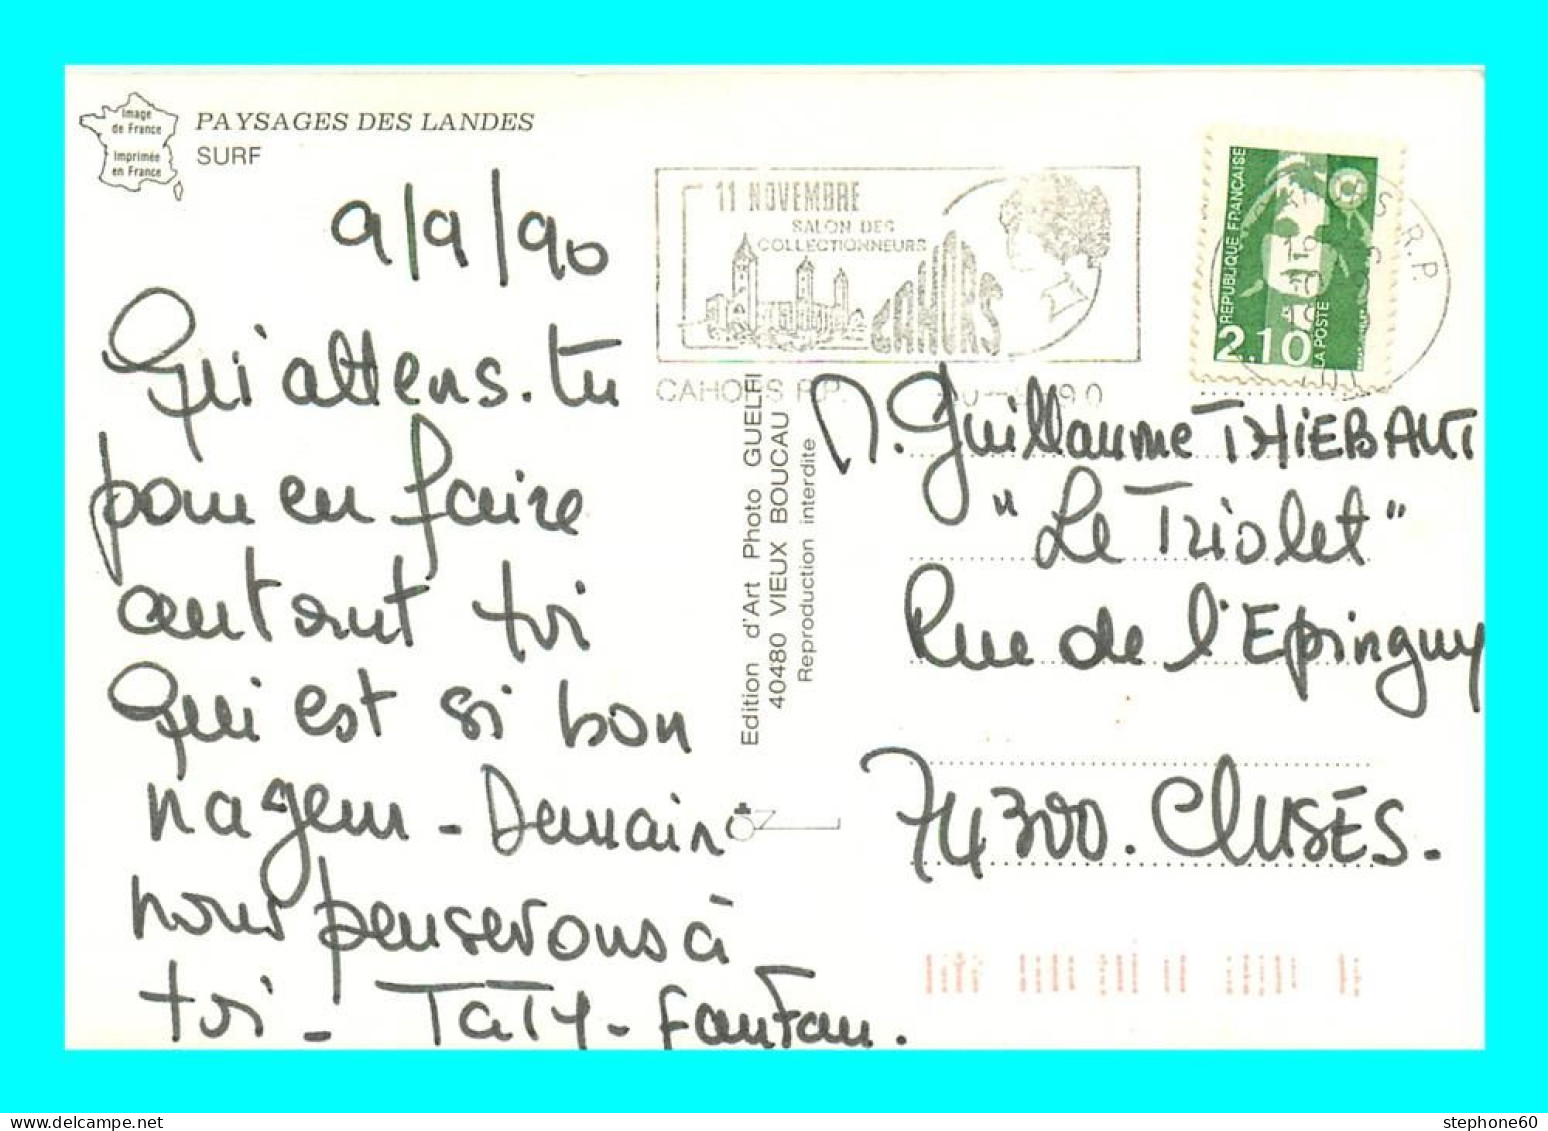 Image
de France
Imprimée
en France
PAYSAGES DES LANDES
SURF
9/9/90
Qu'attens-tu
pour en faire
autant toi
Qui est si bon
nageur - Demain
nous penserons à
toi - TaTY - FanFan.
Edition d'Art Photo GUELFI
40480 VIEUX BOUCAU
Reproduction interdite
11 NOVEMBRE
SALON DES
COLLECTIONNEURS
CAHORS
CAHORS R.P.
REPUBLIQUE FRANÇAISE
2,10
LA POSTE
R.P.
M. Guillaume THIEBAUT
"Le Triolet"
Rue de l'Epinguy
74300. CLUSES.
stephone60